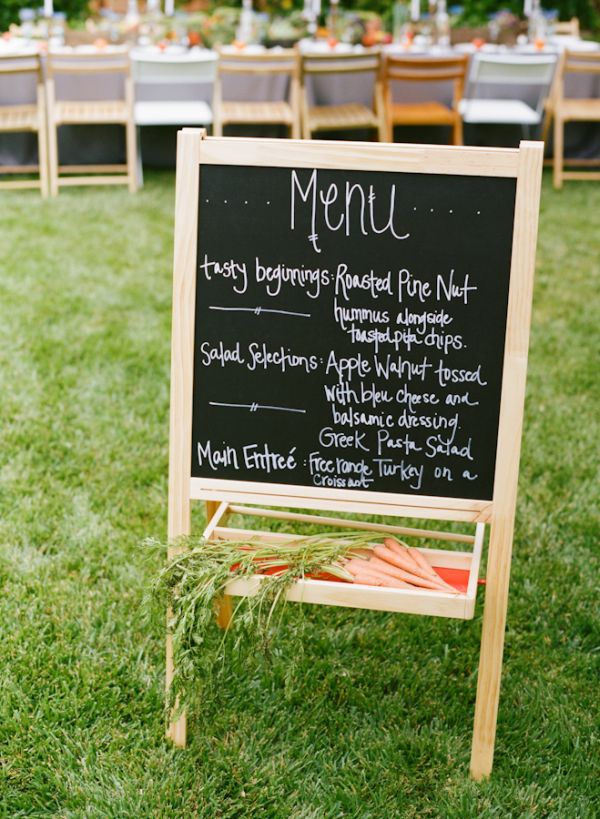 Menu
tasty beginnings: Roasted Pine Nut
hummus alongside
toasted pita chips.
Salad Selections: Apple Walnut tossed
with bleu cheese and
balsamic dressing.
Greek Pasta Salad
Main Entreé: Free range Turkey on a
Croissant